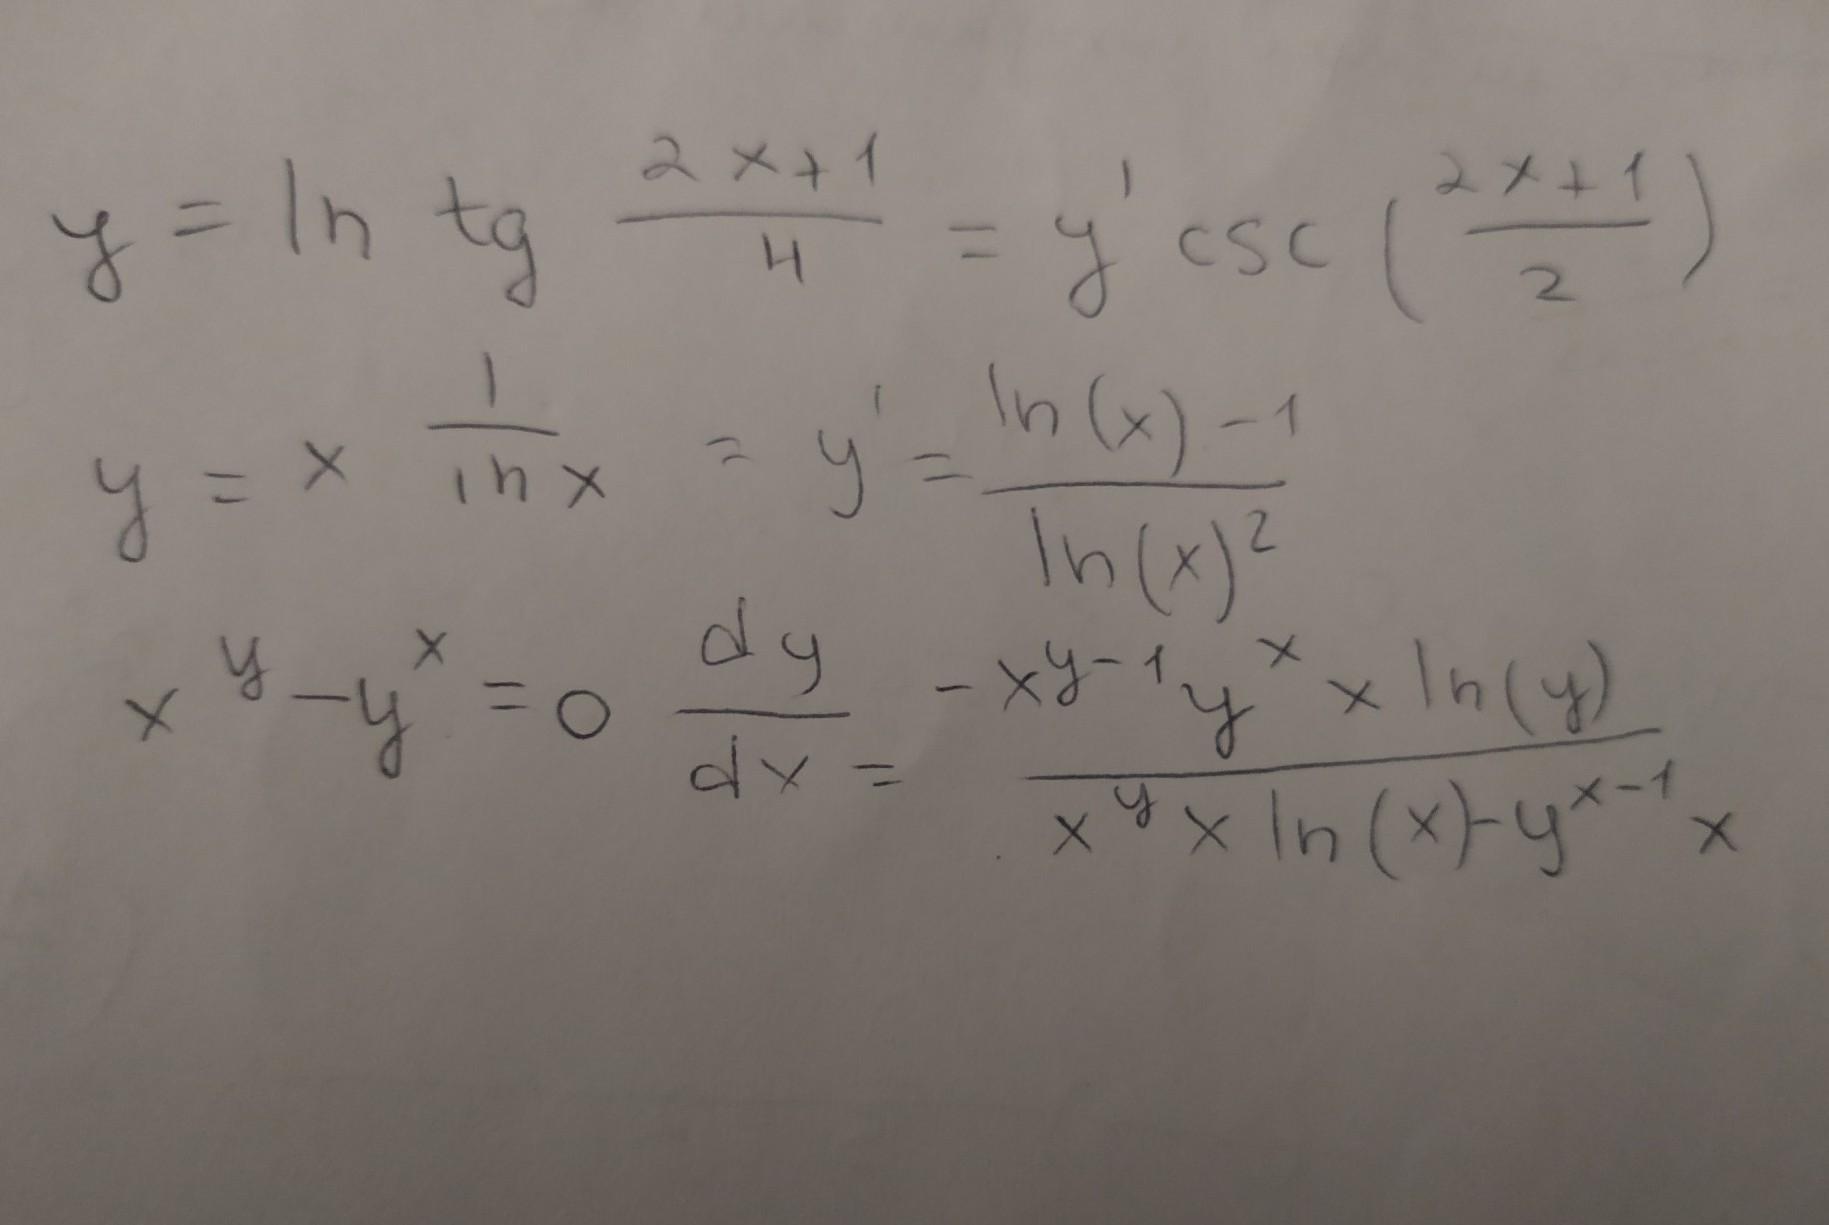 y = ln tg \frac{2x+1}{4} = y' csc(\frac{2x+1}{2})
y = x \frac{1}{ln x} = y' = \frac{ln(x)-1}{ln(x)^2}
x^y - y^x = 0 \frac{dy}{dx} = \frac{-x^{y-1} y^x x ln(y)}{x^y x ln(x) - y^{x-1} x}